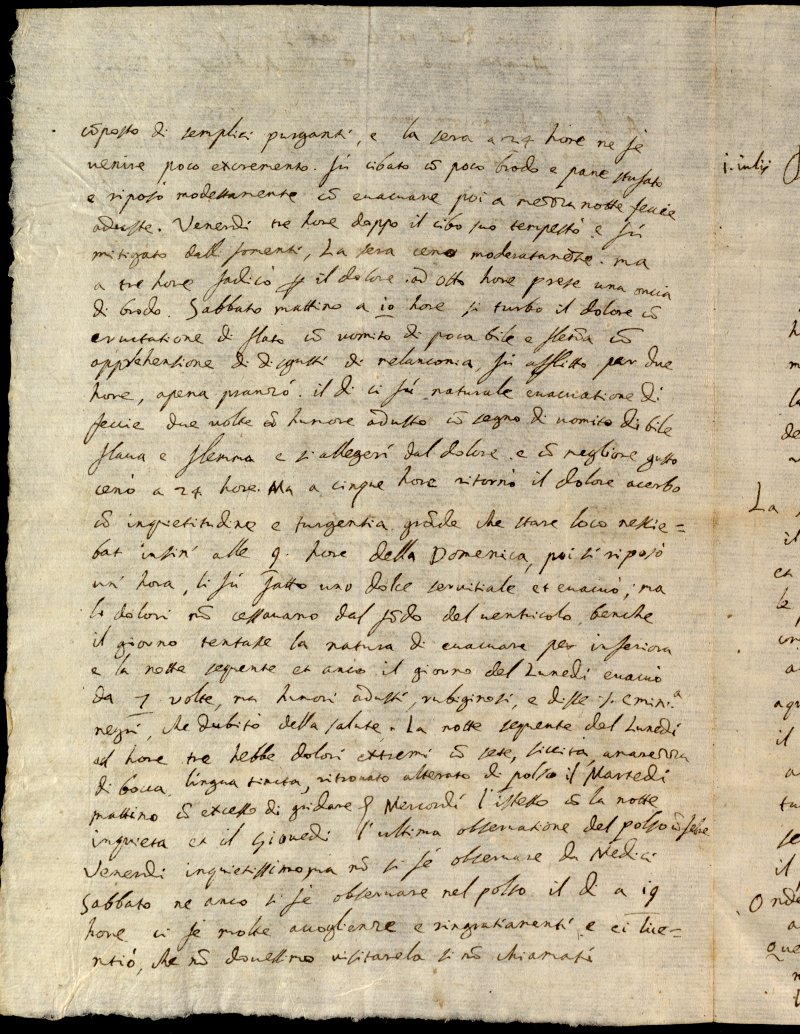 cõposto di semplici purganti, e la sera a 24 hore ne fé
venire poco excremento. fú cibato cõ poco brodo e pane stufato
e riposò modestamente cõ evacuare poi a mezza notte feccie
aduste. Venerdi tre hore doppo il cibo suo tempestò e fú
mitigato dalli fomenti, La sera cenò moderatamẽte. ma
a tre hore il dolore. ad otto hore prese una oncia
di brodo. Sabbato mattino a 10 hore si turbo il dolore cõ
eructatione di flato cõ vomito di poca bile e flẽma cõ
apprehensione di disgusti di melanconia, fú afflitto per due
hore, apena pranzó. il di li fú naturale evacuatione di
feccie due volte cõ humore adusto cõ segno di vomito di bile
flava e flemma e si allegerí dal dolore. e cõ megliore gusto
cenò a 24 hore. Ma a cinque hore ritornò il dolore acerbo
cõ inquietitudine e turgentia grãde che stare loco nescie=
bat insin' alle 9. hore della Domenica, poi si riposò
un' hora, li fú fatto uno dolce servitiale et evacuò; ma
li dolori nõ cessavano dal fõdo del ventricolo, benche
il giorno tentasse la natura di evacuare per inferiora
e la notte sequente et anco il giorno del Lunedi evacuò
da 7 volte, ma humori adusti, rubiginosi, e disse
negri, che dubitò della salute. La notte sequente del Lunedi
ad hore tre hebbe dolori extremi cõ sete, siccita, amarezza
di bocca, lingua tincta, ritrovato alterato di polso il Martedi
mattino cõ excesso di gridare Mercordi l'istesso cõ la notte
inquieta et il Giovedi l'ultima observatione del polso cõ febre
Venerdi inquietissimo, ma nõ si fé observare da Medici
Sabbato ne anco si fé observare nel polso il di a 19
hore ci fé molte accoglienze e ringratiamenti e ci lice=
ntiò, che nõ dovessimo visitarela si nõ chiamati
j. iulij
La
il
et
le
il
il
Onde